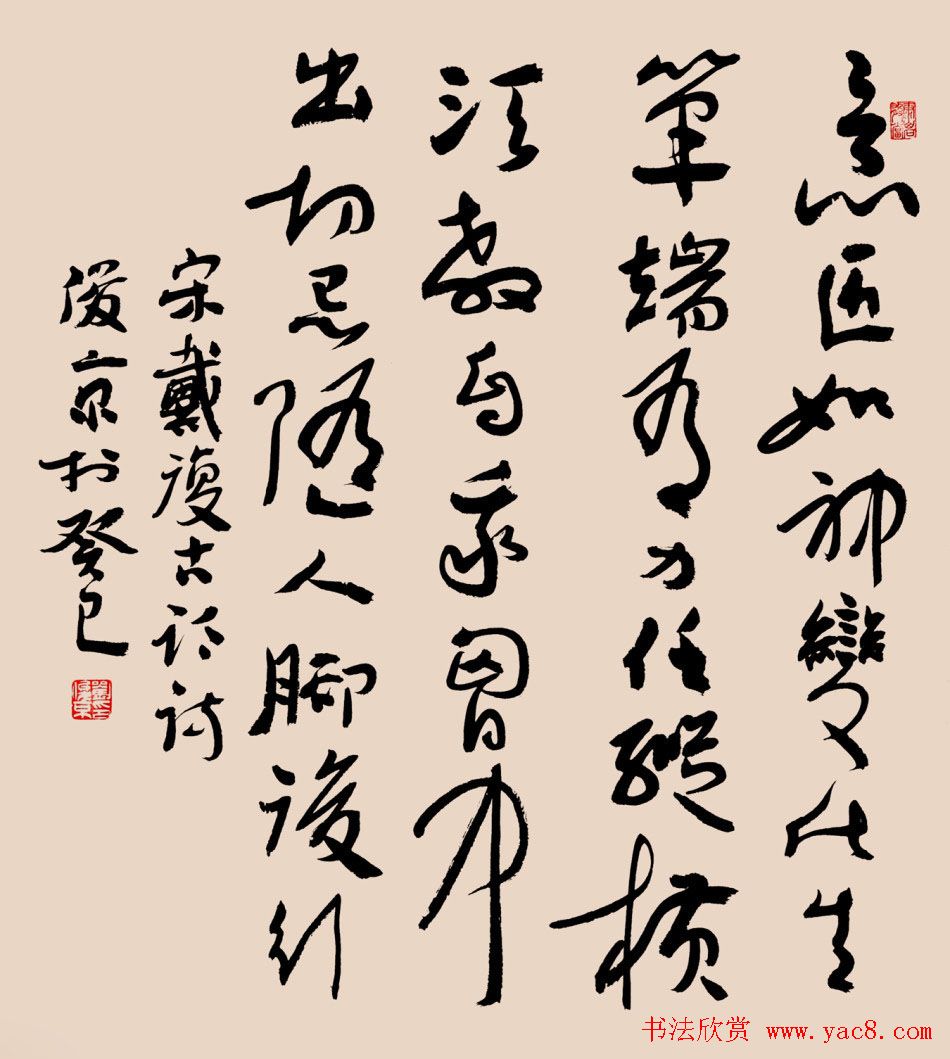 意匠如神變化生
筆端有力任縱橫
須教自我胷中
出切忌隨人腳後行
宋戴復古論詩
俊京於癸巳
书法欣赏 www.yac8.com